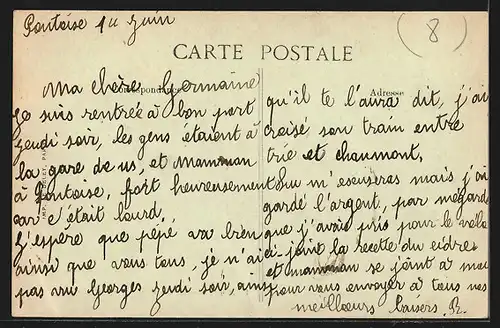 Pontoise 1er Juin
(8)
CARTE POSTALE
Correspondance
Adresse
Ma chère Germaine
Je suis rentrée à bon port
jeudi soir, les gens étaient à
la gare de us, et Mamman
à Pontoise, fort heureusement
car c'était lourd.
J'espère que pépé va bien
ainsi que vous tous, je n'ai
pas vu Georges jeudi soir, ainsi
qu'il te l'aura dit, j'ai
croisé son train entre
trie et chaumont.
Tu m'escuseras mais j'ai
gardé l'argent, par mégarde
que j'avais pris pour le vélo
ci joint la recette du cidre
et mamman se joint à moi
pour vous envoyer à tous nos
meilleurs baisers.